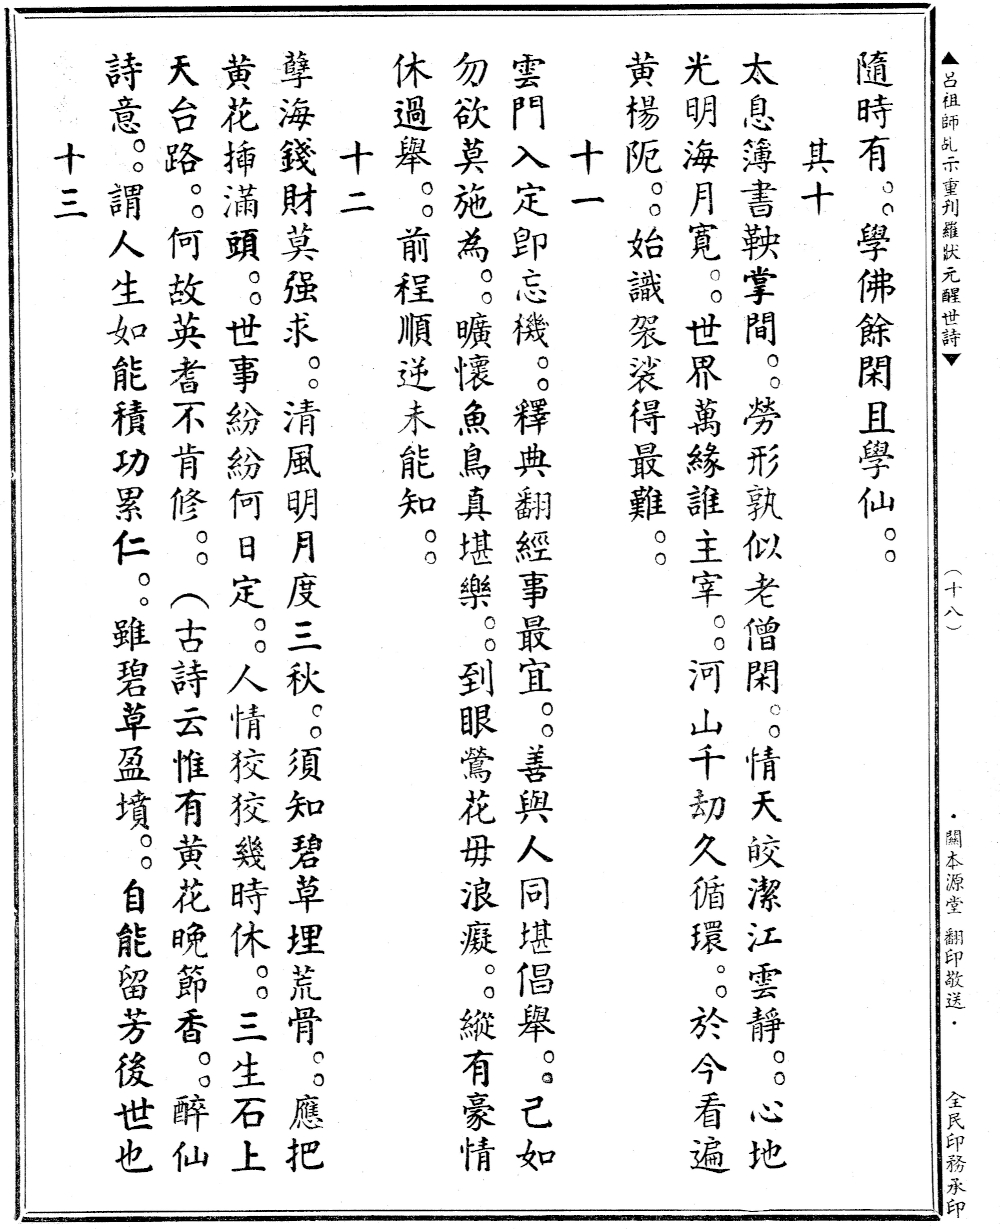 ▲呂祖師乩示重刋羅狀元醒世詩▼
（十八）
·闗本源堂 翻印敬送·
全民印務承印
隨時有。。學佛餘閑且學仙。。
其十
太息簿書鞅掌間。。勞形孰似老僧閑。。情天皎潔江雲靜。。心地
光明海月寬。。世界萬緣誰主宰。。河山千劫久循環。。於今看遍
黄楊阨。。始識袈裟得最難。。
十一
雲門入定卽忘機。。釋典翻經事最宜。。善與人同堪倡舉。。己如
勿欲莫施為。。曠懷魚鳥真堪樂。。到眼鶯花毋浪癡。。縱有豪情
休過舉。。前程順逆未能知。。
十二
孽海錢財莫强求。。清風明月度三秋。。須知碧草埋荒骨。。應把
黄花插滿頭。。世事紛紛何日定。。人情狡狡幾時休。。三生石上
天台路。。何故英耆不肯修。。（古詩云惟有黄花晚節香。。醉仙
詩意。。謂人生如能積功累仁。。雖碧草盈墳。。自能留芳後世也
十三